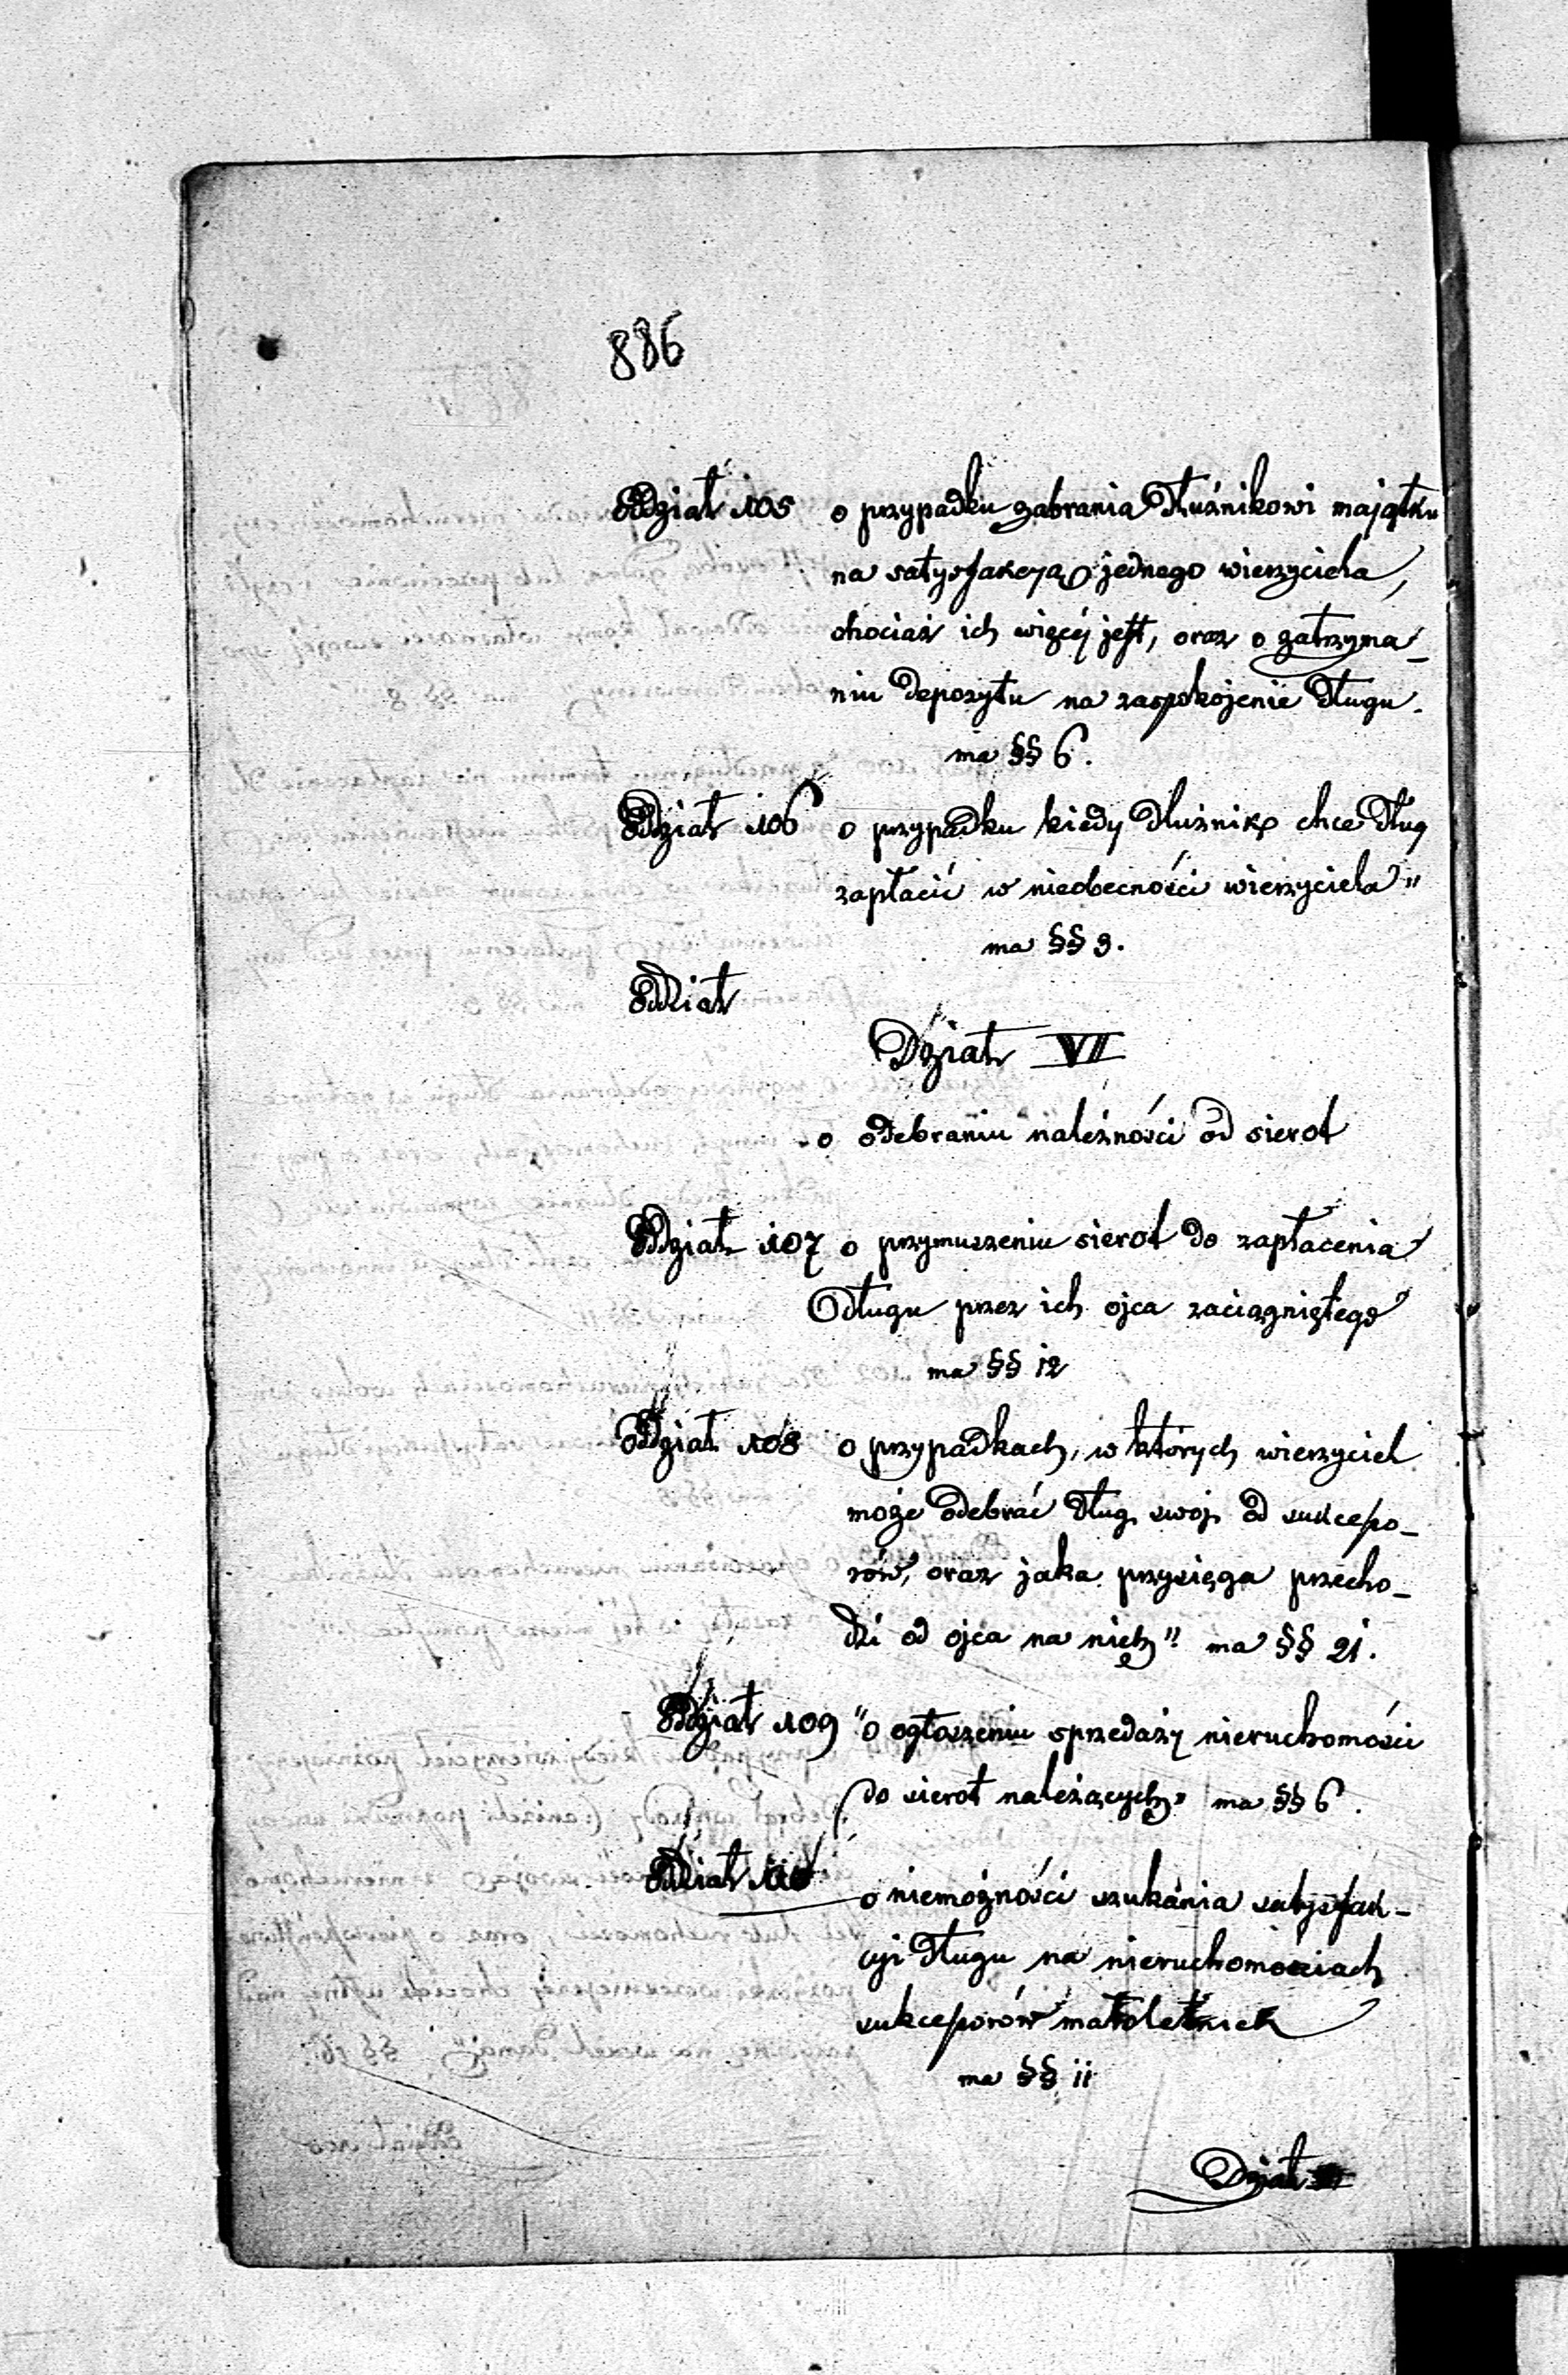 886
Oddział 105 o przypadku zabrania Dłużnikowi majątku
na satysfakcyą jednego wierzyciela,
chociaż ich więcéj jest, oraz o zatrzyma-
niu depozytu na zaspokojenie Długu.
ma §§ 6.
Oddział 106 o przypadku kiedy Dłużnik chce Dług
zapłacić w nieobecności wierzyciela"
ma §§ 3.
Oddział
Dział VI
o odebraniu należności od sierot
Oddział 107 o przymuszeniu sierot do zapłacenia
Długu przez ich ojca zaciągniętego
ma §§ 12
Oddział 108 o przypadkach, w których wierzyciel
może odebrać Dług swój od sukcesso-
rów, oraz jaka przysięga przecho-
dzi od ojca na nich" ma §§ 21.
Oddział 109 "o ogłoszeniu sprzedaży nieruchomości
do sierot należących" ma §§ 6.
Oddział 110 o niemożności szukania satysfak-
cyi Długu na nieruchomościach
sukcessorów małoletnich
ma §§ 11
Dział